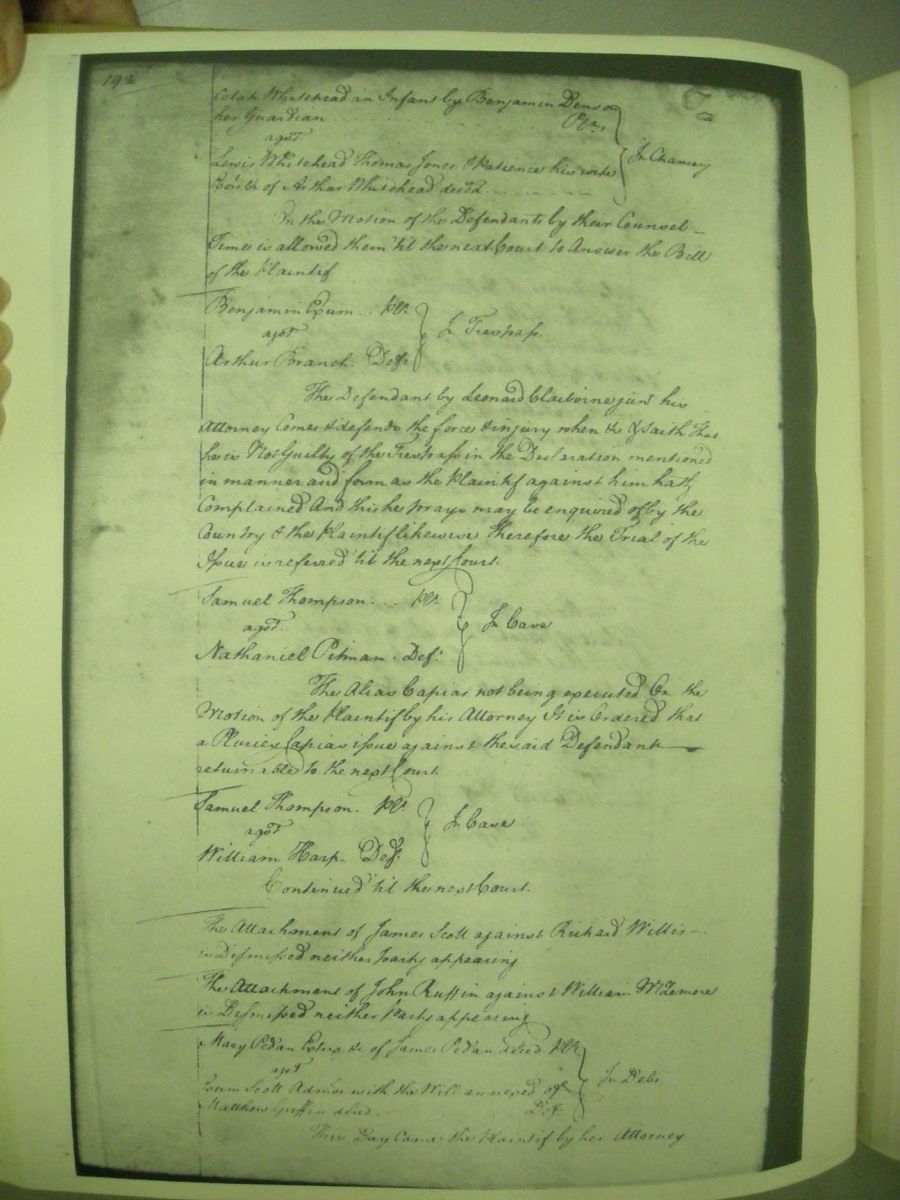 192
Whitehead an Infant by Benjamin Denson
her Guardian Plts
agst
In Chancery
Lewis Whitehead Thomas Jones & Patience his wife
of Arthur Whitehead decd
On the Motion of the Defendants by their Counsel
Time is allowed them 'til the next Court to Answer the Bill
of the Plaintif
Benjamin Exum Plt
agst
In Trespass
Arthur Branch Deft
The Defendant by Leonard Claiborne junr his
Attorney Comes & defends the force & injury when &c & saith that
he is Not Guilty of the Trespass in the Declaration mentioned
in manner and form as the Plaintif against him hath
Complained And this he prays may be enquired of by the
Country & the Plaintif likewise Therefore the Trial of the
Issue is referred 'til the next Court.
Samuel Thompson Plt
agst
In Case
Nathaniel Pitman Deft
The Alias Capias not being executed On the
Motion of the Plaintif by his Attorney It is Ordered that
a Pluries Capias issue against the said Defendant
returnable to the next Court
Samuel Thompson Plt
agst
In Case
William Harp Deft
Continued 'til the next Court.
The Attachment of James Scott against Richard Willis
is Dismissed neither party appearing
The Attachment of John Ruffin against William McLemore
is Dismissed neither Party appearing
Mary Pedan Extrx &c of James Pedan decd Plt
agst
In Debt
Exum Scott Admor with the Will annexed of
Matthew Griffin decd Deft
This Day Came the Plaintif by her Attorney